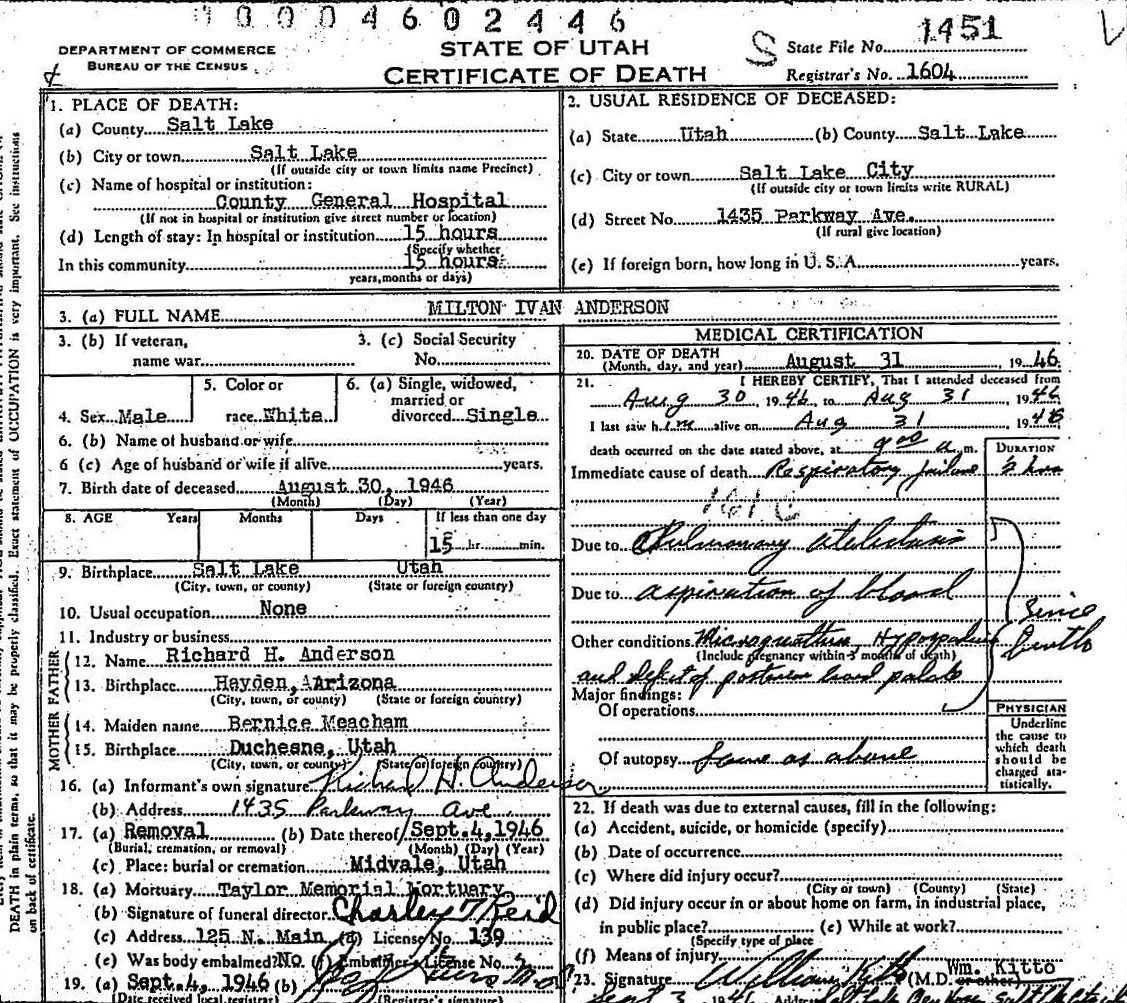 10004602446
DEPARTMENT OF COMMERCE
BUREAU OF THE CENSUS
STATE OF UTAH
CERTIFICATE OF DEATH
S
State File No. 1451
Registrar's No. 1604
1. PLACE OF DEATH:
(a) County Salt Lake
(b) City or town Salt Lake
(If outside city or town limits name Precinct)
(c) Name of hospital or institution:
County General Hospital
(If not in hospital or institution give street number or location)
(d) Length of stay: In hospital or institution 15 hours
(Specify whether
In this community 15 hours
years, months or days)
2. USUAL RESIDENCE OF DECEASED:
(a) State Utah (b) County Salt Lake
(c) City or town Salt Lake City
(If outside city or town limits write RURAL)
(d) Street No. 1435 Parkway Ave.
(If rural give location)
(e) If foreign born, how long in U. S. A. years.
3. (a) FULL NAME MILTON IVAN ANDERSON
3. (b) If veteran, name war
3. (c) Social Security No.
4. Sex Male
5. Color or race White
6. (a) Single, widowed, married or divorced Single
6. (b) Name of husband or wife
6 (c) Age of husband or wife if alive years.
7. Birth date of deceased August 30, 1946
(Month) (Day) (Year)
8. AGE Years Months Days If less than one day
15 hr. min.
9. Birthplace Salt Lake Utah
(City, town, or county) (State or foreign country)
10. Usual occupation None
11. Industry or business
FATHER
12. Name Richard H. Anderson
13. Birthplace Hayden, Arizona
(City, town, or county) (State or foreign country)
MOTHER
14. Maiden name Bernice Meacham
15. Birthplace Duchesne, Utah
(City, town, or county) (State or foreign country)
16. (a) Informant's own signature Richard H. Anderson
(b) Address 1435 Parkway Ave
17. (a) Removal (b) Date thereof Sept. 4, 1946
(Burial, cremation, or removal) (Month) (Day) (Year)
(c) Place: burial or cremation Midvale, Utah
18. (a) Mortuary Taylor Memorial Mortuary
(b) Signature of funeral director Charley T Reid
(c) Address 125 N. Main (d) License No. 139
(e) Was body embalmed? No (f) Embalmer's License No.
19. (a) Sept. 4, 1946 (b)
(Date received local registrar) (Registrar's signature)
MEDICAL CERTIFICATION
20. DATE OF DEATH August 31, 1946
(Month, day, and year)
21. I HEREBY CERTIFY, That I attended deceased from
Aug 30, 1946, to Aug 31, 1946
I last saw him alive on Aug 31, 1946
death occurred on the date stated above, at 9:00 a. m.
DURATION
Immediate cause of death Respiratory failure
161 c
Due to Pulmonary atelectasis
Due to aspiration of blood
Since birth
Other conditions Micrognathia,
(Include pregnancy within 3 months of death)
and defect of posterior hard palate
Major findings:
Of operations
Of autopsy Same as above
PHYSICIAN
Underline the cause to which death should be charged statistically.
22. If death was due to external causes, fill in the following:
(a) Accident, suicide, or homicide (specify)
(b) Date of occurrence
(c) Where did injury occur?
(City or town) (County) (State)
(d) Did injury occur in or about home on farm, in industrial place,
in public place? (e) While at work?
(Specify type of place
(f) Means of injury
23. Signature William Kitto (M.D. or other) Wm. Kitto
Sept 3 1946 Address
DEATH in plain terms, so that it may be properly classified. Exact statement of OCCUPATION is very important. See instructions
on back of certificate.